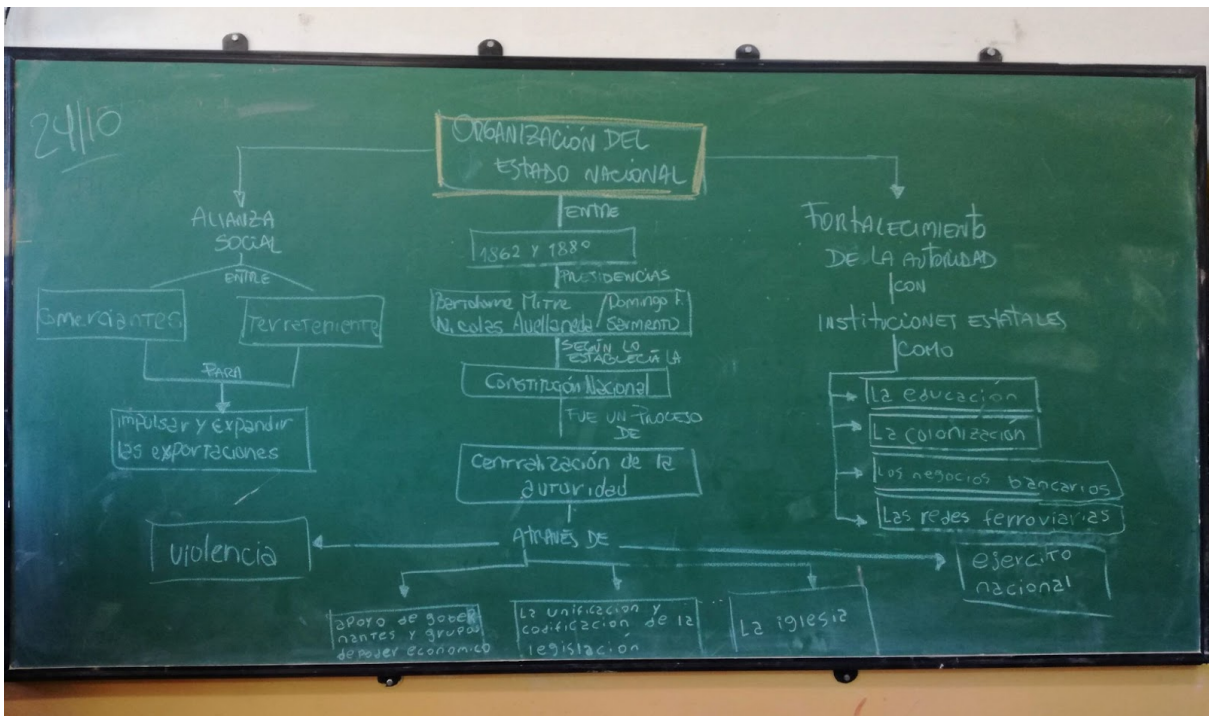 24/10
ORGANIZACIÓN DEL
ESTADO NACIONAL
ALIANZA
SOCIAL
ENTRE
Comerciantes
Terrateniente
PARA
impulsar y expandir
las exportaciones
ENTRE
1862 Y 1880
PRESIDENCIAS
Bartolome Mitre / Domingo F.
Nicolas Avellaneda / Sarmiento
SEGÚN LO
ESTABLECIA LA
Constitución Nacional
FUE UN PROCESO
DE
Centralización de la
autoridad
ATRAVÉS DE
violencia
apoyo de gober
nantes y grupos
de poder economico
La unificacion y
codificacion de la
legislación
La iglesia
ejercito
nacional
FORTALECIMIENTO
DE LA AUTORIDAD
CON
INSTITUCIONES ESTATALES
COMO
La educación
La colonización
Los negocios bancarios
Las redes ferroviarias